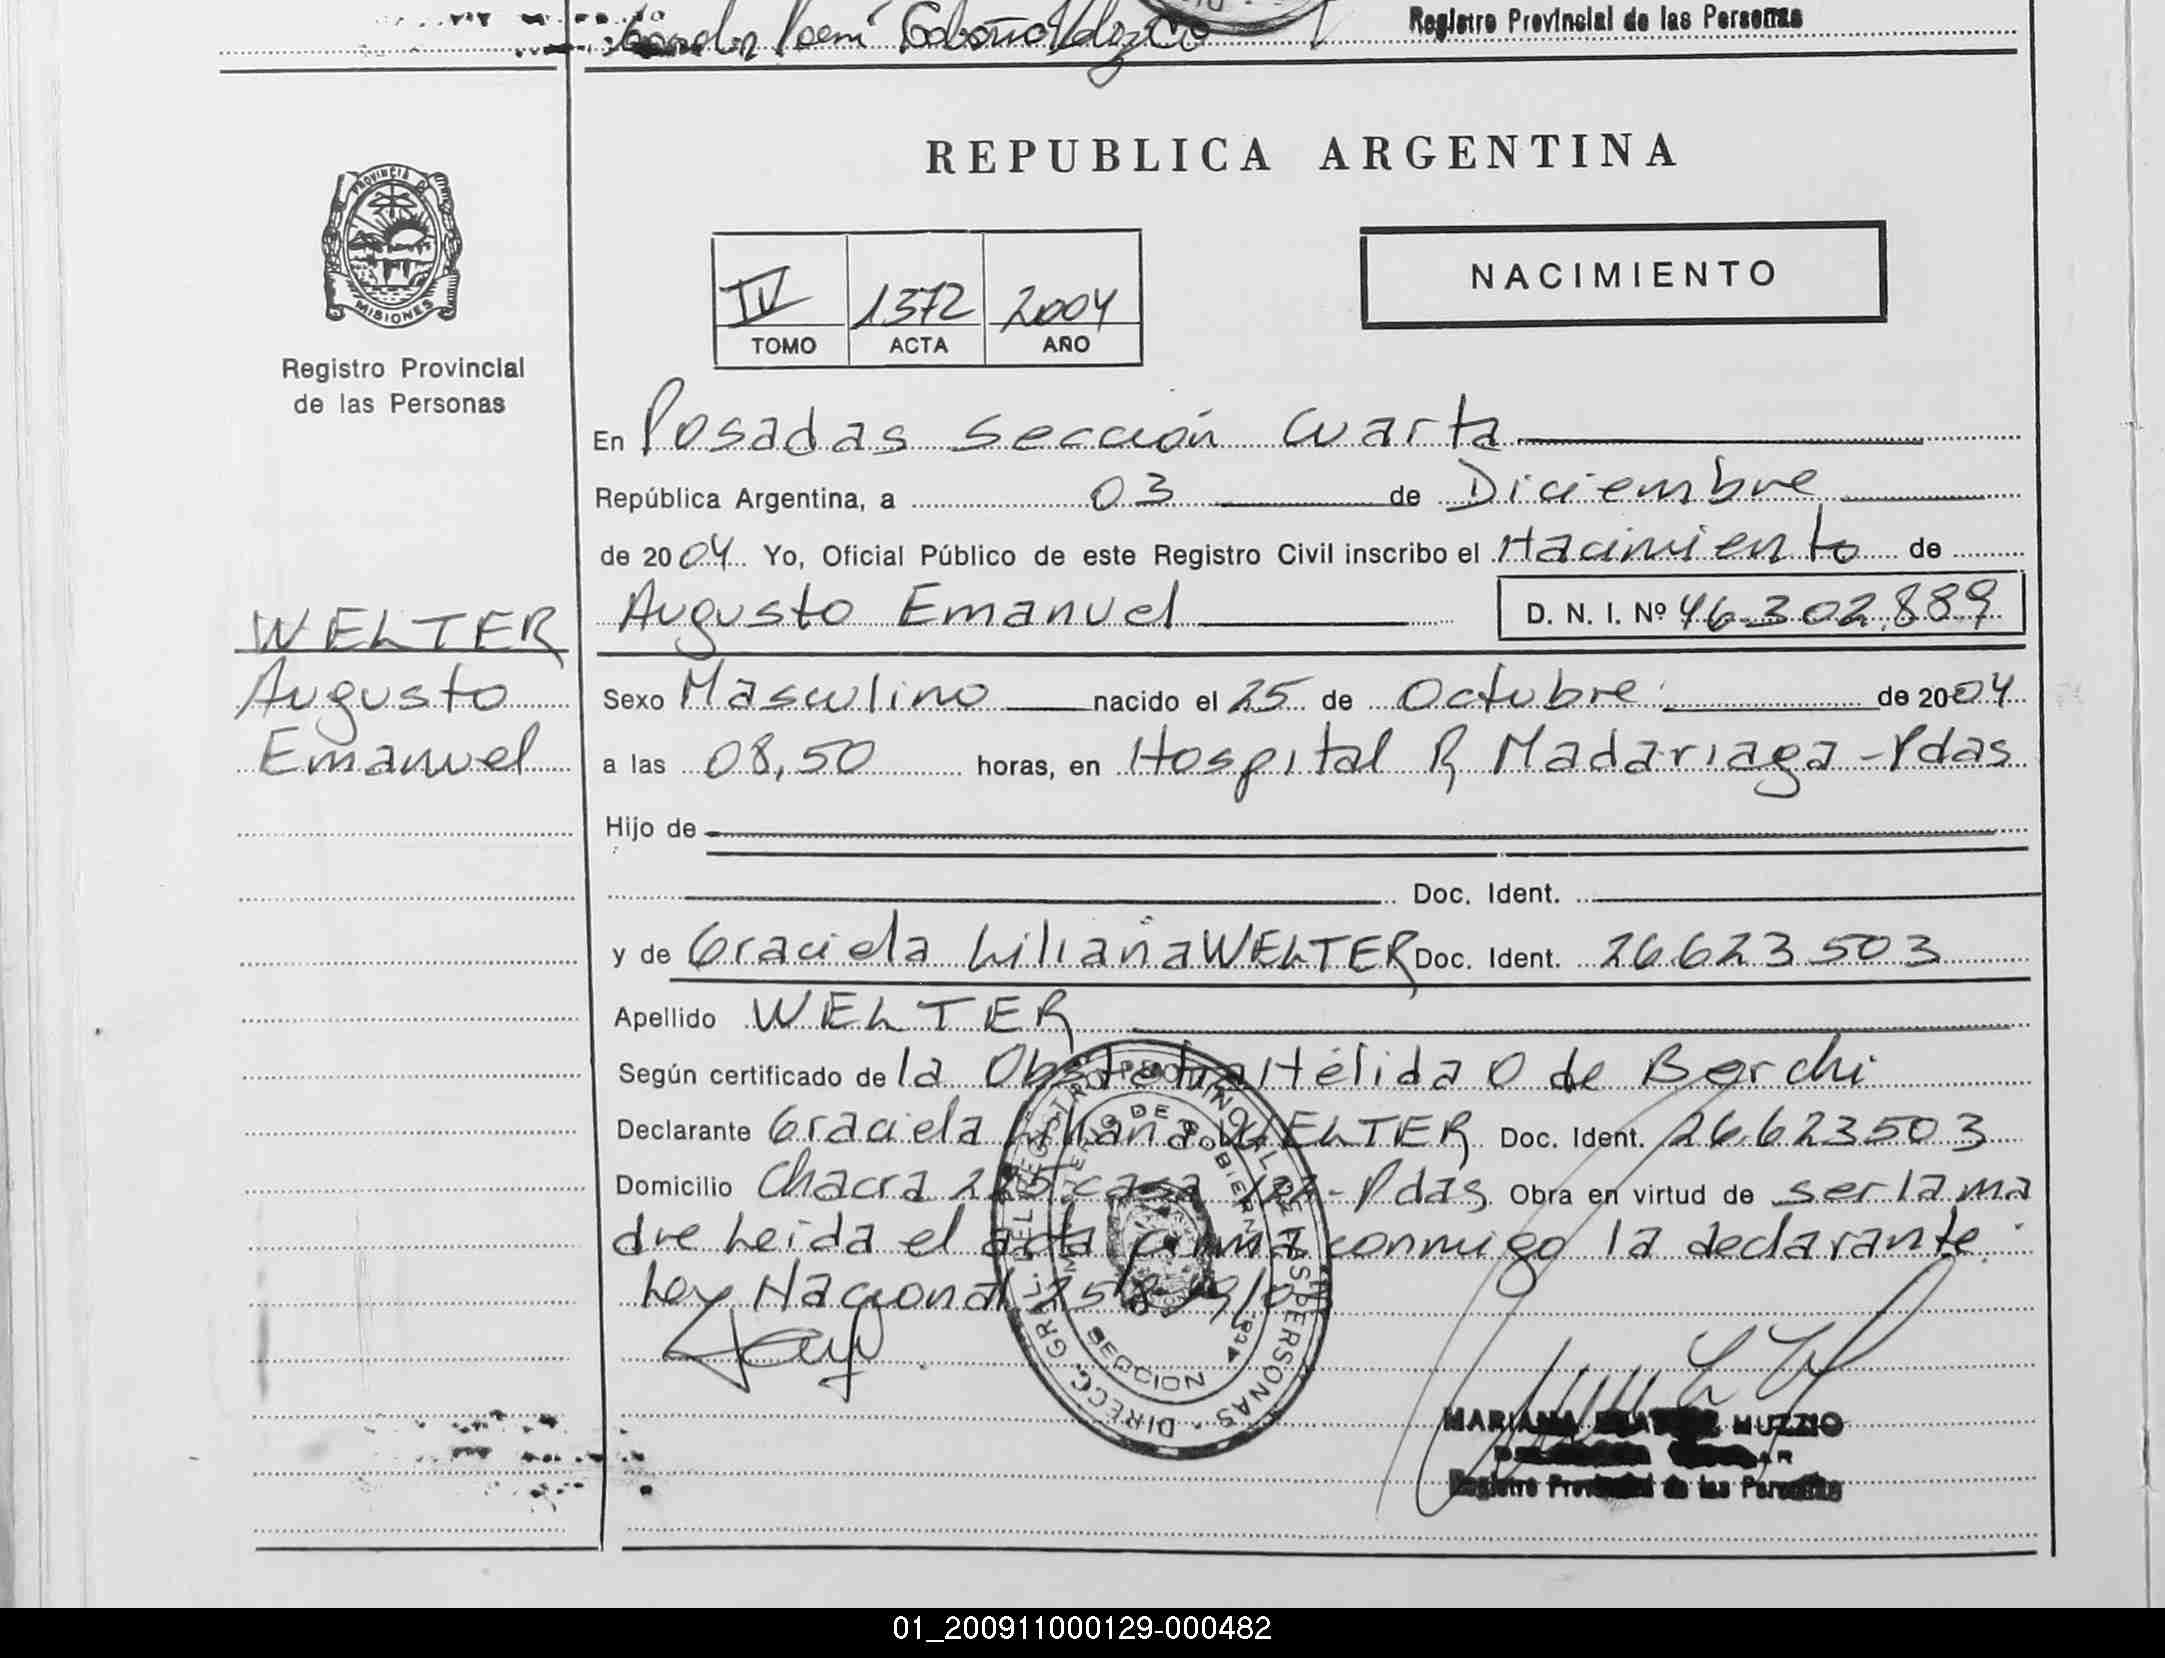 Registro Provincial de las Personas
REPUBLICA ARGENTINA
PROVINCIA DE
MISIONES
Registro Provincial
de las Personas
NACIMIENTO
IV 1372 2004
TOMO ACTA AÑO
En Posadas sección cuarta
República Argentina, a 03 de Diciembre
de 2004 Yo, Oficial Público de este Registro Civil inscribo el Nacimiento de
Augusto Emanuel D. N. I. Nº 46.302.889
WELTER
Augusto
Emanuel
Sexo Masculino nacido el 25 de Octubre de 2004
a las 08,50 horas, en Hospital R Madariaga - Pdas
Hijo de
Doc. Ident.
y de Graciela Liliana WELTER Doc. Ident. 26.623.503
Apellido WELTER
Según certificado de la Obstetra Nélida O de Berchi
Declarante Graciela Liliana WELTER Doc. Ident. 26.623.503
Domicilio Chacra casa - Pdas Obra en virtud de ser la ma
dre Leida el acta firma conmigo la declarante.
Ley Nacional
DIRECC. GRAL. DEL REGISTRO PROVINCIAL DE LAS PERSONAS
MINISTERIO DE GOBIERNO
SECCION 4ta.
MARIANA MUZZIO
Registro Provincial de las Personas
01_200911000129-000482